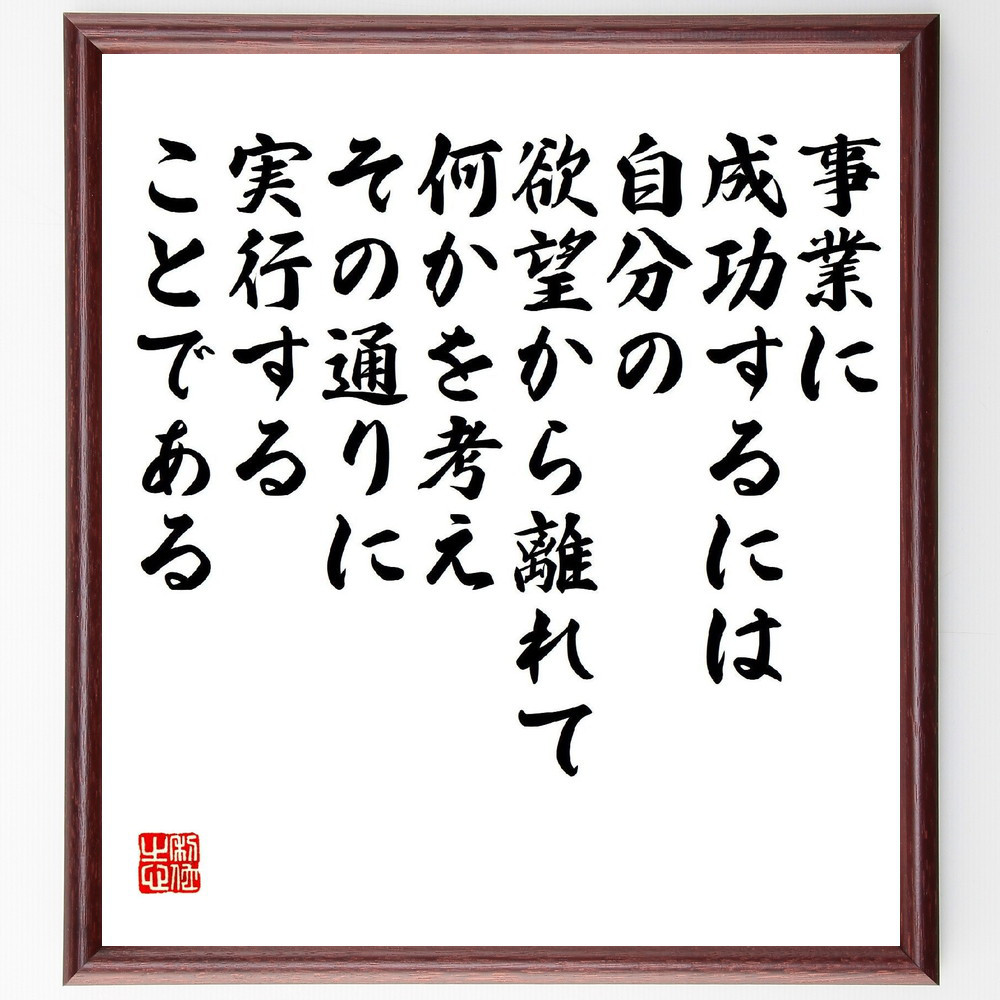 事業に
成功するには
自分の
欲望から離れて
何かを考え
その通りに
実行する
ことである